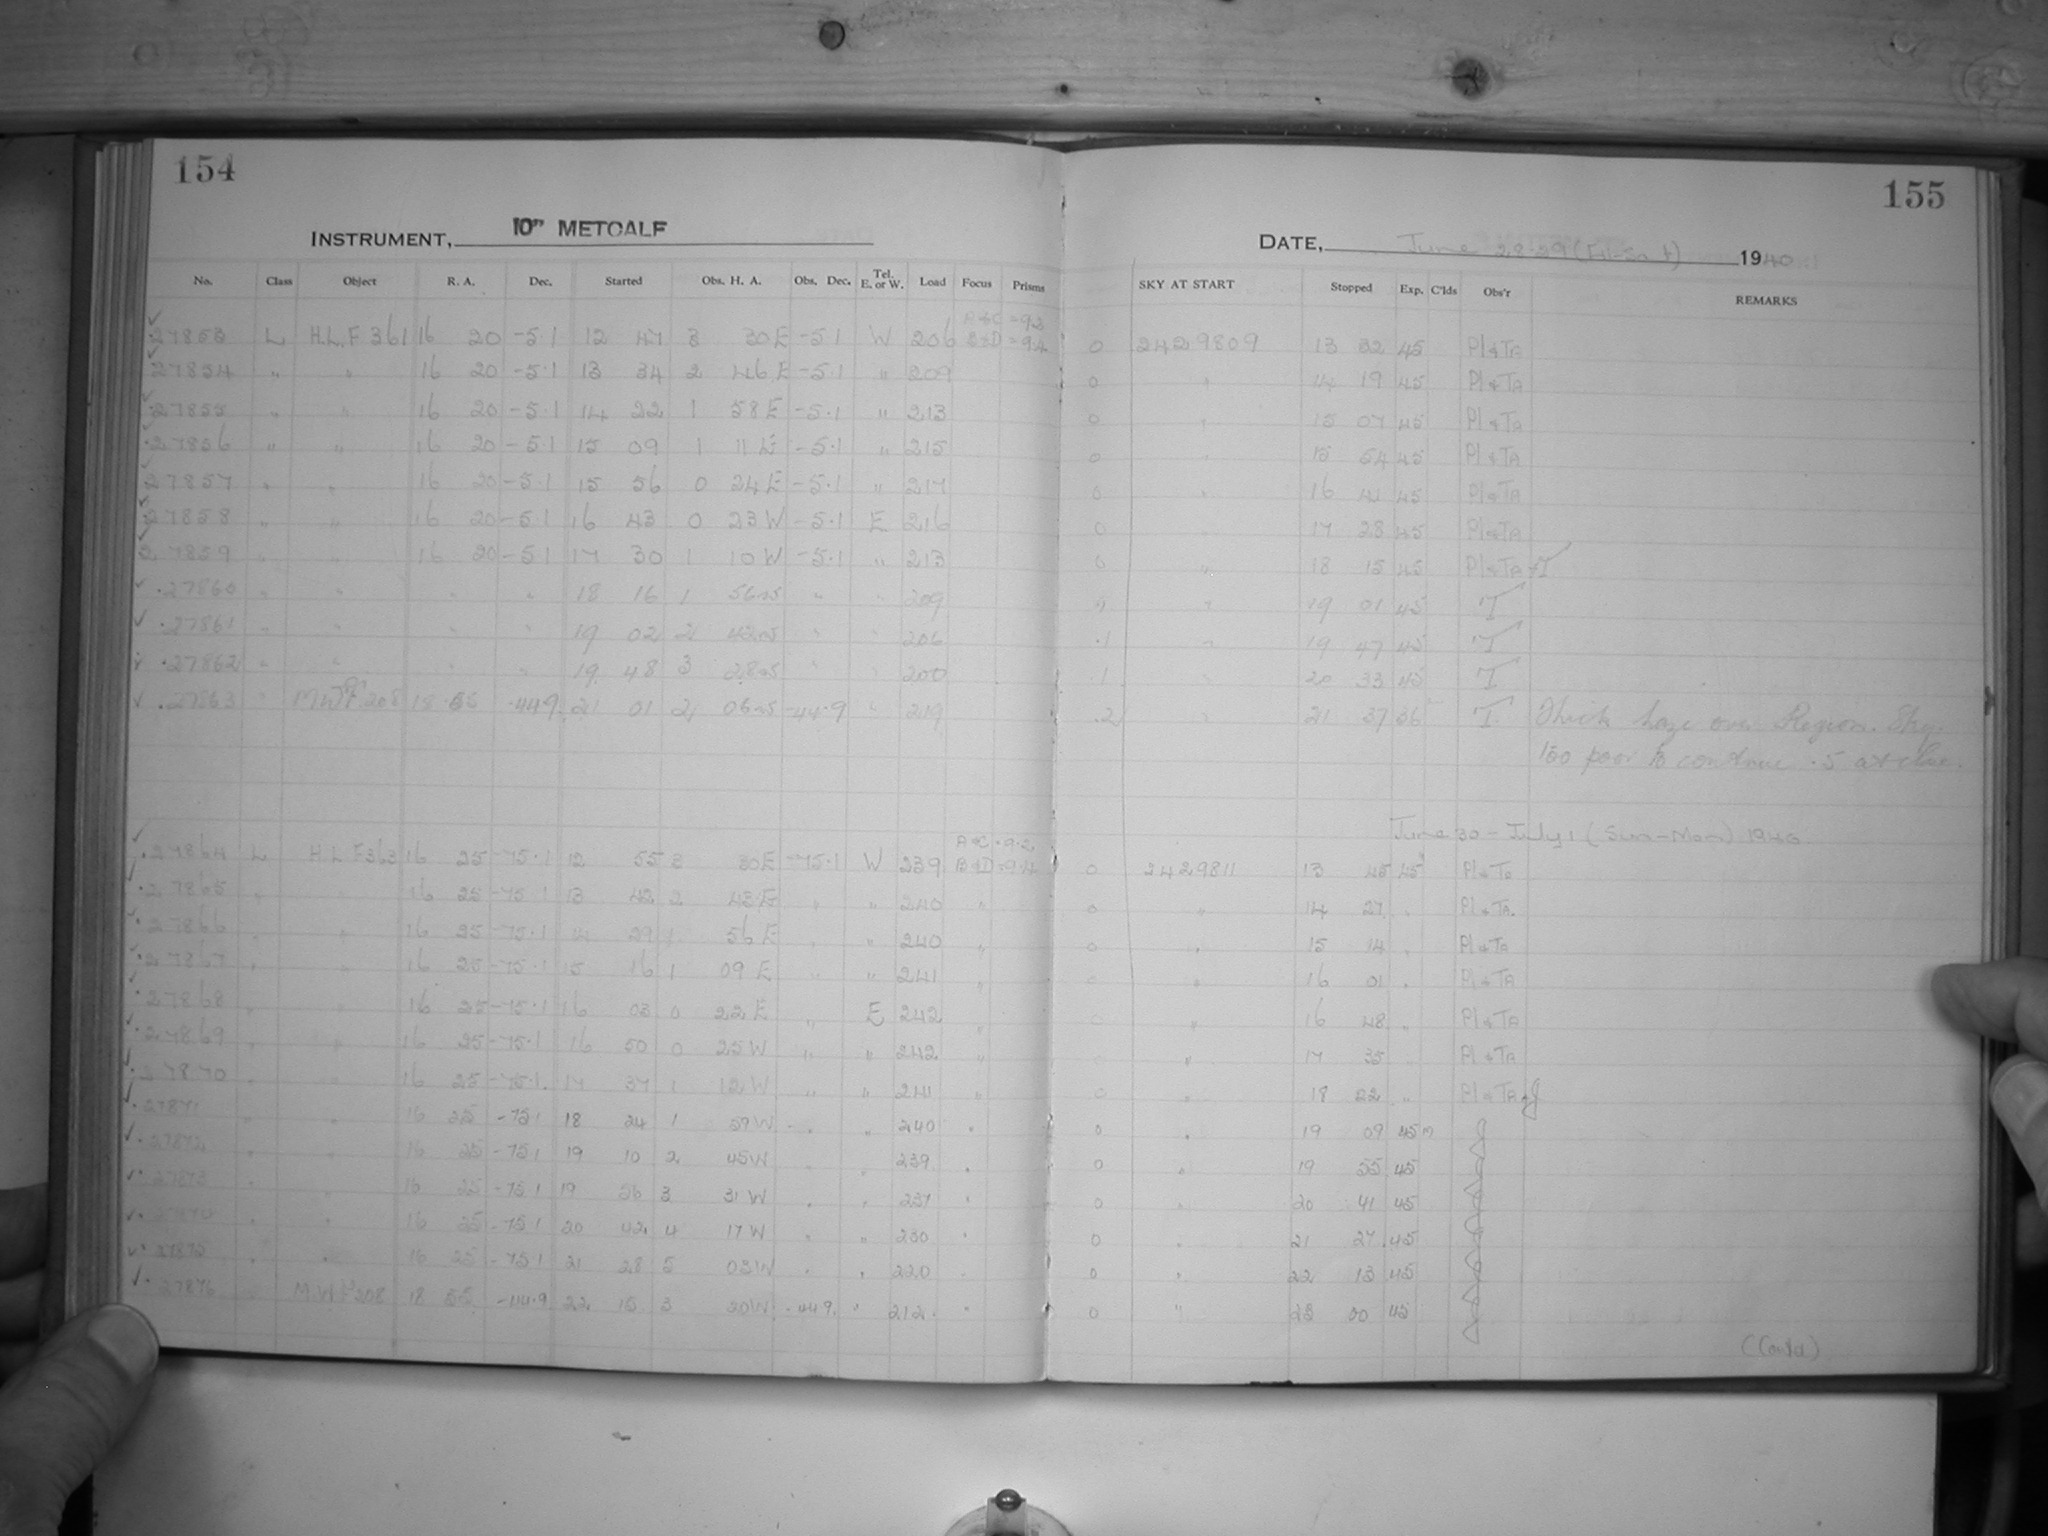 154
155
INSTRUMENT, 10" METCALF
DATE, June 28-29 (Fri-Sat) 1940
No. Class Object R. A. Dec. Started Obs. H. A. Obs. Dec. Tel. E. or W. Load Focus Prisms SKY AT START Stopped Exp. C'lds Obs'r REMARKS
27853 L H.L.F 361 16 20 -5.1 12 47 3 30 E -5.1 W 206 A&C = 9.2 B&D = 9.4 0 2429809 13 32 45 Pl & TA
27854 " " 16 20 -5.1 13 34 2 46 E -5.1 " 209 0 " 14 19 45 Pl & TA
27855 " " 16 20 -5.1 14 22 1 58 E -5.1 " 213 0 " 15 07 45 Pl & TA
27856 " " 16 20 -5.1 15 09 1 11 E -5.1 " 215 0 " 15 54 45 Pl & TA
27857 " " 16 20 -5.1 15 56 0 24 E -5.1 " 217 0 " 16 41 45 Pl & TA
27858 " " 16 20 -5.1 16 43 0 23 W -5.1 E 216 0 17 28 45 Pl & TA
27859 " " 16 20 -5.1 17 30 1 10 W -5.1 " 213 0 " 18 15 45 Pl & TA & T
27860 " " " " 18 16 1 56 W " " 209 " " 19 01 45 T
27861 " " " " 19 02 2 42 W " " 206 .1 " 19 47 45 T
27862 " " " " 19 48 3 28 W " " 200 .1 " 20 33 45 T
27863 " MWF 208 18 55 -44.9 21 01 2 06 W -44.9 " 219 .2 " 21 37 36 T Thick haze over Region. Sky
too poor to continue .5 at close.
June 30 - July 1 (Sun-Mon) 1940
27864 L H L F 363 16 25 -75.1 12 55 3 30 E -75.1 W 239 A&C = 9.2 B&D = 9.4 0 2429811 13 45 45 Pl & TA
27865 " " 16 25 -75.1 13 42 2 43 E " " 240 " 0 " 14 27 " Pl & TA.
27866 " " 16 25 -75.1 14 29 1 56 E " " 240 " 0 " 15 14 " Pl & TA
27867 " " 16 25 -75.1 15 16 1 09 E " " 241 " 0 " 16 01 " Pl & TA
27868 " " 16 25 -75.1 16 03 0 22 E " E 242 " 0 " 16 48 " Pl & TA
27869 " " 16 25 -75.1 16 50 0 25 W " " 242 " 0 " 17 35 Pl & TA
27870 " " 16 25 -75.1 17 37 1 12 W " " 241 " 0 " 18 22 " Pl & TA & J
27871 " " 16 25 -75.1 18 24 1 59 W " " 240 " 0 " 19 09 45m
27872 " " 16 25 -75.1 19 10 2 45 W " " 239 " 0 " 19 55 45
27873 " " 16 25 -75.1 19 56 3 31 W " " 237 " 0 " 20 41 45
27874 " " 16 25 -75.1 20 42 4 17 W " " 230 " 0 " 21 27 45
27875 " " 16 25 -75.1 21 28 5 03 W " " 220 0 " 22 13 45
27876 " M.W.F 208 18 55 -44.9 22 15 3 20 W -44.9 " 212 " 0 " 23 00 45
(Contd)